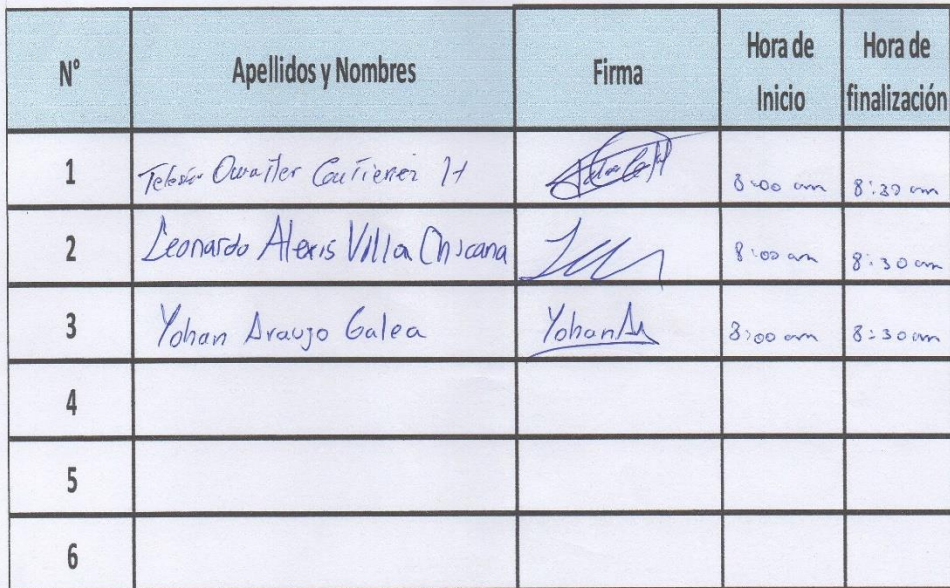 N° Apellidos y Nombres Firma Hora de Inicio Hora de finalización
1 Gutierrez H 8:00 am 8:30 am
2 Leonardo Alexis Villa Chicana 8:00 am 8:30 am
3 Yohan Araujo Galea YohanAr 8:00 am 8:30 am
4
5
6